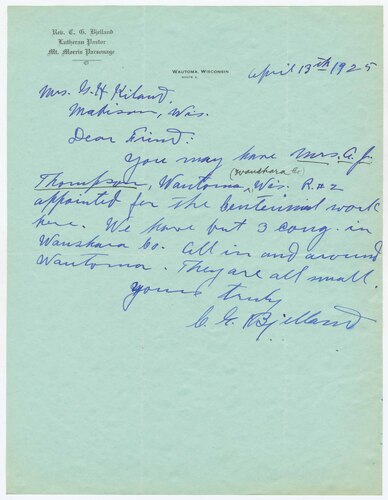 Rev. C. G. Bjelland
Lutheran Pastor
Mt. Morris Parsonage
Wautoma, Wisconsin
Route 2
April 13th 1925
Mrs. G. H. Kiland,
Madison, Wis.
Dear Friend:
You may have Mrs. A. J.
(Waushara Co
Thompson, Wautoma, Wis. R#2
appointed for the Centennial work
here. We have but 3 cong. in
Waushara Co. all in and around
Wautoma. They are all small.
Yours truly
C. G. Bjelland